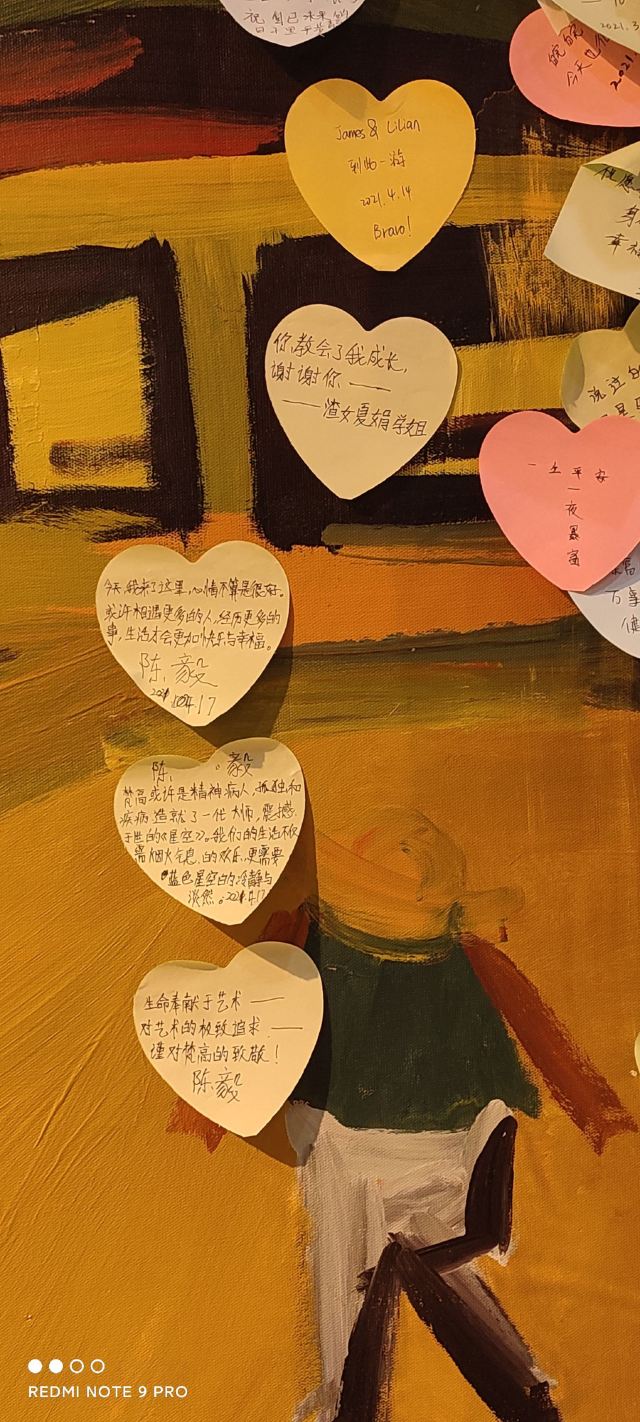 祝自己未来的
日子里
2021.3
皖皖
今天也
2021.
James & Lilian
到此一游
2021.4.14
Bravo!
幸福
你,教会了我成长,
谢谢你.——
——渣女夏娟学姐
说这
一生平安
一夜暴富
万事
今天,我来了这里,心情不算是很好。
或许相遇更多的人,经历更多的
事,生活才会更加快乐与幸福。
陈毅
2021.04.17
陈毅
梵高或许是精神病人,孤独和
疾病造就了一代大师,震撼
于世的《星空》。我们的生活不仅
需烟火气息,的欢乐,更需要
蓝色星空的冷静与
淡然。2021.4.17
生命奉献于艺术——
对艺术的极致追求.——
谨对梵高的致敬!
陈毅
REDMI NOTE 9 PRO